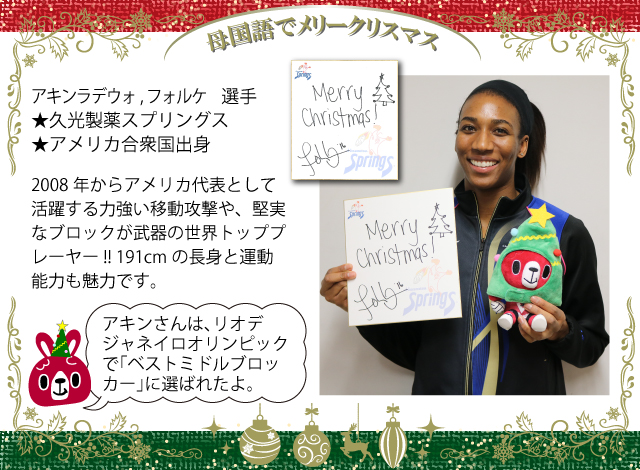 母国語でメリークリスマス
アキンラデウォ,フォルケ 選手
★久光製薬スプリングス
★アメリカ合衆国出身
2008年からアメリカ代表として
活躍する力強い移動攻撃や、堅実
なブロックが武器の世界トッププ
レーヤー!!191cmの長身と運動
能力も魅力です。
アキンさんは、リオデ
ジャネイロオリンピック
で「ベストミドルブロッ
カー」に選ばれたよ。
Springs
Merry
Christmas!
16
Springs
Merry
Christmas!
16
Springs